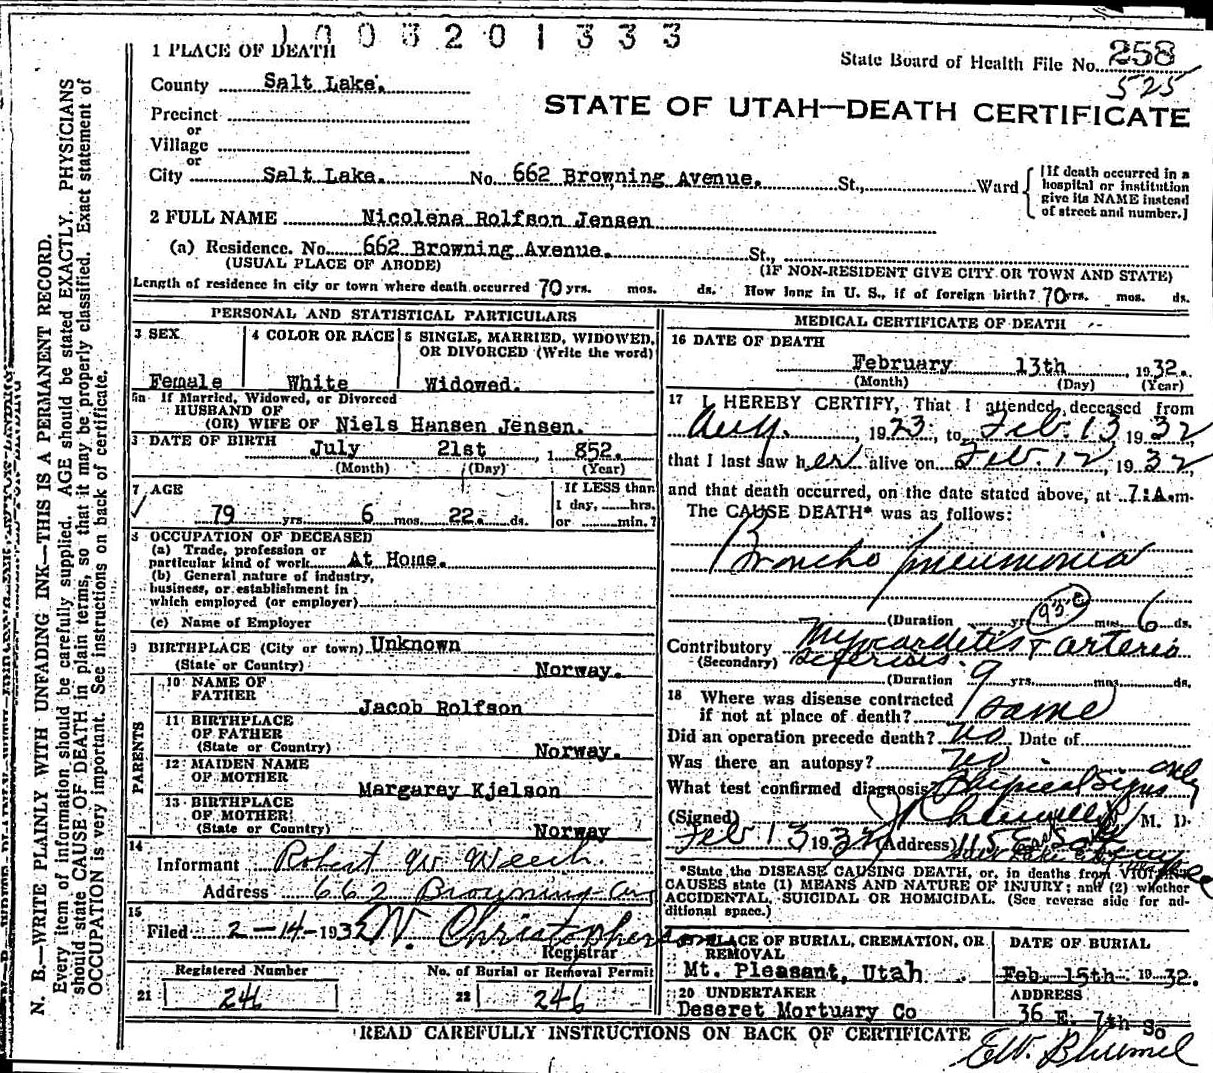 1003201333
State Board of Health File No. 258
525
1 PLACE OF DEATH
County Salt Lake.
STATE OF UTAH—DEATH CERTIFICATE
Precinct
or
Village
or
City Salt Lake. No. 662 Browning Avenue. St., Ward
[If death occurred in a hospital or institution give its NAME instead of street and number.]
2 FULL NAME Nicolena Rolfson Jensen
(a) Residence. No. 662 Browning Avenue. St.,
(USUAL PLACE OF ABODE) (IF NON-RESIDENT GIVE CITY OR TOWN AND STATE)
Length of residence in city or town where death occurred 70 yrs. mos. ds. How long in U. S., if of foreign birth? 70 yrs. mos. ds.
PERSONAL AND STATISTICAL PARTICULARS
3 SEX
Female
4 COLOR OR RACE
White
5 SINGLE, MARRIED, WIDOWED, OR DIVORCED (Write the word)
Widowed.
5a If Married, Widowed, or Divorced
HUSBAND OF
(OR) WIFE OF Niels Hansen Jensen.
DATE OF BIRTH
July 21st , 1 852.
(Month) (Day) (Year)
7 AGE
79 yrs. 6 mos. 22. ds.
If LESS than
1 day, hrs.
or min.?
8 OCCUPATION OF DECEASED
(a) Trade, profession or
particular kind of work At Home.
(b) General nature of industry,
business, or establishment in
which employed (or employer)
(c) Name of Employer
9 BIRTHPLACE (City or town) Unknown
(State or Country) Norway.
PARENTS
10 NAME OF
FATHER
Jacob Rolfson
11 BIRTHPLACE
OF FATHER
(State or Country) Norway.
12 MAIDEN NAME
OF MOTHER
Margarey Kjelson
13 BIRTHPLACE
OF MOTHER
(State or Country) Norway
14
Informant Robert W
Address 662 Browning Ave
15
Filed 2-14-1932 W. Christopherson
Registrar
Registered Number
21 246
No. of Burial or Removal Permit
22 246
MEDICAL CERTIFICATE OF DEATH
16 DATE OF DEATH
February 13th , 1932.
(Month) (Day) (Year)
17 I HEREBY CERTIFY, That I attended deceased from
Aug. , 1923, to Feb. 13 1932
that I last saw her alive on Feb. 12, 1932
and that death occurred, on the date stated above, at 7:A.m.
The CAUSE DEATH* was as follows:
Broncho pneumonia
93-c
(Duration yrs. mos. 6 ds.
Contributory Myocarditis & arterio
(Secondary) sclerosis.
(Duration 9 yrs. mos. ds.
18 Where was disease contracted
if not at place of death? same
Did an operation precede death? no Date of
Was there an autopsy? no
What test confirmed diagnosis? Physical Signs only
(Signed) M. D.
Feb 13 1932 (Address) 115 E
*State the DISEASE CAUSING DEATH, or, in deaths from VIOLENT
CAUSES state (1) MEANS AND NATURE OF INJURY; and (2) whether
ACCIDENTAL, SUICIDAL OR HOMICIDAL. (See reverse side for ad-
ditional space.)
PLACE OF BURIAL, CREMATION, OR
REMOVAL
Mt. Pleasant, Utah
DATE OF BURIAL
Feb. 15th. 1932.
20 UNDERTAKER
Deseret Mortuary Co
ADDRESS
36 E. 7th So
READ CAREFULLY INSTRUCTIONS ON BACK OF CERTIFICATE
E.W.
N. B.—WRITE PLAINLY WITH UNFADING INK—THIS IS A PERMANENT RECORD.
Every item of information should be carefully supplied. AGE should be stated EXACTLY. PHYSICIANS
should state CAUSE OF DEATH in plain terms, so that it may be properly classified. Exact statement of
OCCUPATION is very important. See instructions on back of certificate.